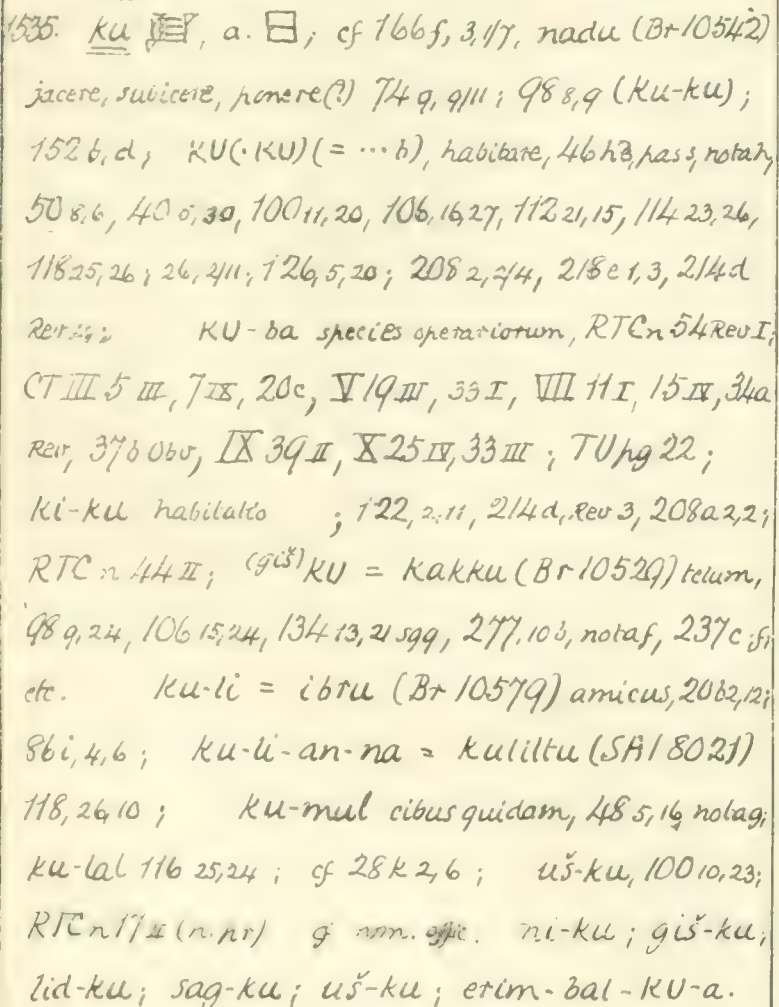 1535. ku , a. ; cf 166f, 3,1/7, nadu (Br 10542)
jacere, subicere, ponere(?) 74 9, 9/11; 98 8,9 (ku-ku);
152 b, d; KU(·KU)(= ··· b), habitare, 46 h3, pass, nota h,
50 8,6, 40 6,30, 100 11,20, 106,16,27, 112 21,15, 114 23,26,
118 25,26; 26, 2/11; 126,5,20; 208 2, 2/4, 218 e 1,3, 214d
Rev KU-ba species operariorum, RTC n 54 Rev I;
CT III 5 III, 7 IX, 20c, V 19 III, 33 I, VII 11 I, 15 IV, 34a
Rev, 37b Obv, IX 39 II, X 25 IV, 33 III; TU pg 22;
ki-ku habitatio ; 122, 2,11, 214d, Rev 3, 208a 2,2;
RTC n 44 II; (giš) KU = kakku (Br 10529) telum,
98 9,24, 106 15,24, 134 13,21 sqq, 277,10b, nota f, 237c
etc. ku-li = ibru (Br 10579) amicus, 20b2,12;
86i,4,6; ku-li-an-na = kuliltu (SAI 8021)
118,26,10; ku-mul cibus quidam, 48 5,16 nota g;
ku-lal 116 25,24; cf 28k 2,6; uš-ku, 100 10,23;
RTC n 17 II (n. pr) nom. ni-ku; giš-ku;
lid-ku; sag-ku; uš-ku; erim-bal-KU-a.